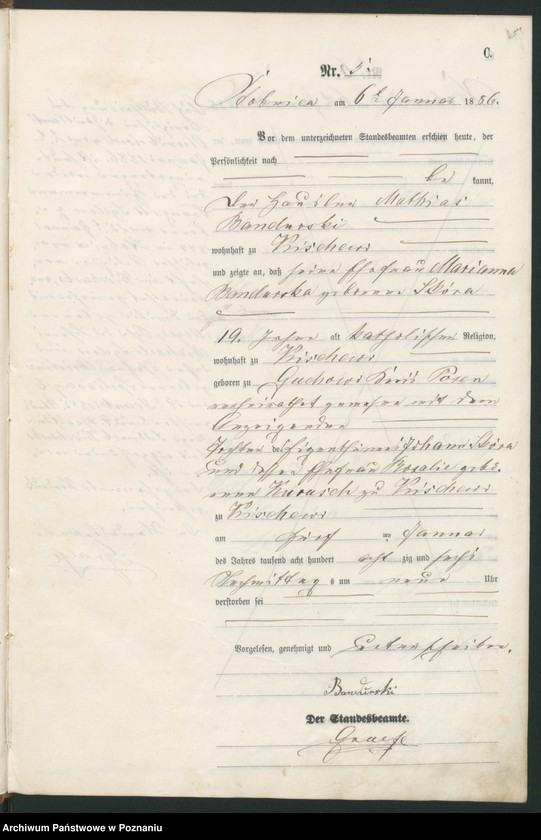 C.
Nr. 5.
am 6t Januar 1886.
Vor dem unterzeichneten Standesbeamten erschien heute, der
Persönlichkeit nach
be kannt,
Der Häusler Mathias
Bandurski
wohnhaft zu Kischewo
und zeigte an, daß seine Ehefrau Marianna
Bandurska geborene Skóra
19. Jahre alt katholischer Religion,
wohnhaft zu Kischewo
geboren zu Kreis Posen
verheirathet gewesen mit dem
Anzeigenden
Tochter des Eigenthümers Johann Skóra
und dessen Ehefrau Rosalie gebo-
rene zu Kischewo
zu Kischewo
am fünf ten Januar
des Jahres tausend acht hundert acht zig und sechs
Nachmittags um neun Uhr
verstorben sei
Vorgelesen, genehmigt und unterschrieben.
Bandurski
Der Standesbeamte.
Archiwum Państwowe w Poznaniu